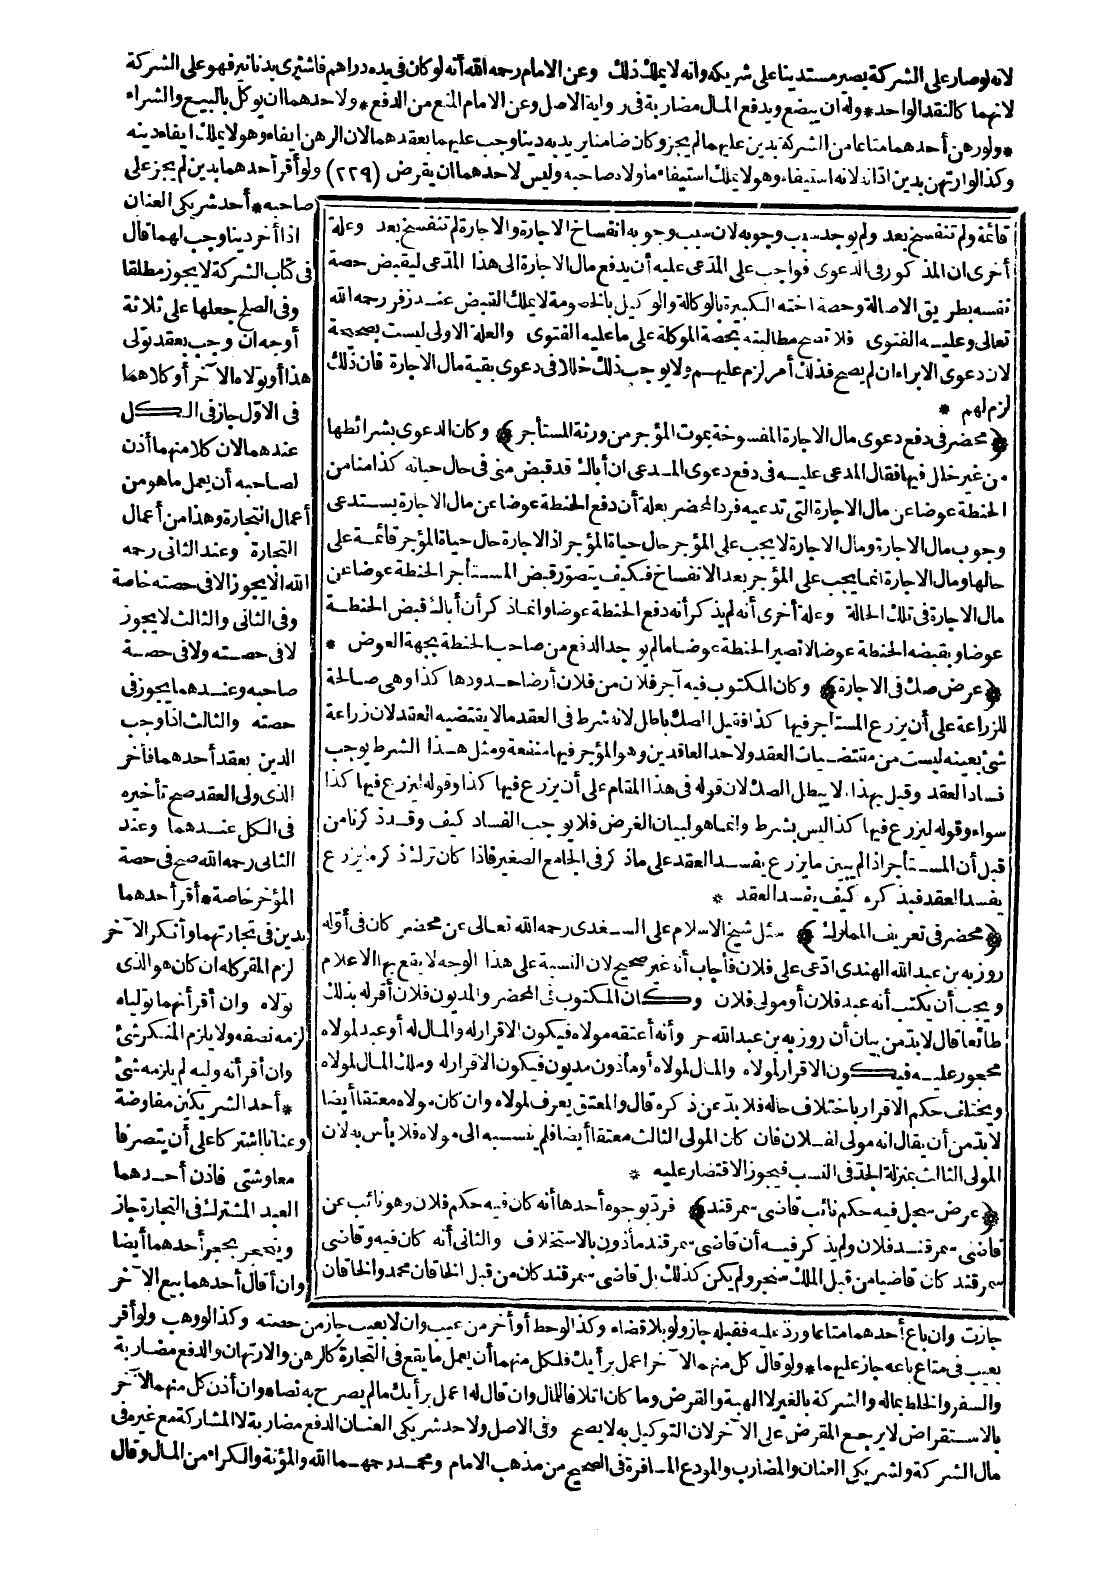 لانه لوصار على الشركة يصير مستدينا على شريكه وانه لا يملك ذلك وعن الامام رحمه الله أنه لو كان فى يده دراهم فاشترى بدنانير فهو على الشركة
لانهما كالنقد الواحد * وله ان يبضع ويدفع المال مضاربة فى رواية الاصل وعن الامام المنع من الدفع * ولاحدهما ان يوكل بالبيع والشراء
* ولو رهن أحدهما متاعا من الشركة بدين عليهما لم يجز وكان ضامنا يريد به دينا وجب عليهما بعقدهما لان الرهن ايفاء وهو لا يملك ايفاء دينه
وكذا لو ارتهن بدين اداناه لانه استيفاء وهو لا يملك استيفاء ما ولاه صاحبه وليس لاحدهما ان يقرض (٢٢٩) ولو أقر أحدهما بدين لم يجز على
صاحبه * أحد شريكى العنان
اذا أخر دينا وجب لهما قال
فى كتاب الشركة لا يجوز مطلقا
وفى الصلح جعلها على ثلاثة
أوجه ان وجب بعقد تولى
هذا أو بولاه الآخر أو كلاهما
فى الاوّل جاز فى الكل
عندهما لان كلا منهما أذن
لصاحبه أن يعمل ما هو من
أعمال التجارة وهذا من أعمال
التجارة وعند الثانى رحمه
الله لا يجوز الا فى حصته خاصة
وفى الثانى والثالث لا يجوز
لا فى حصته ولا فى حصة
صاحبه وعندهما يجوز فى
حصته والثالث اذا وجب
الدين بعقد أحدهما فأخر
الذى ولى العقد صح تأخيره
فى الكل عندهما وعند
الثانى رحمه الله صح فى حصة
المؤخر خاصة * أقر أحدهما
بدين فى تجارتهما وأنكر الآخر
لزم المقر كله ان كان هو الذى
تولاه وان أقر أنهما تولياه
لزمه نصفه ولا يلزم المنكر شئ
وان أقر أنه وليه لم يلزمه شئ
* أحد الشريكين مفاوضة
وعنانا اشتركا على أن يتصرفا
معا وشتى فاذن أحدهما
العبد المشترك فى التجارة جاز
وينحجر بحجر أحدهما أيضا
وان أقال أحدهما بيع الآخر
قائمة ولم تنفسخ بعد ولم يوجد سبب وجوبه لان سبب وجوبه انفساخ الاجارة والاجارة لم تنفسخ بعد وعلة
أخرى ان المذكور فى الدعوى فواجب على المدّعى عليه أن يدفع مال الاجارة الى هذا المدّعى ليقبض حصة
نفسه بطريق الاصالة وحصة اخته الكبيرة بالوكالة والوكيل بالخصومة لا يملك القبض عند زفر رحمه الله
تعالى وعليه الفتوى فلا تصح مطالبته بحصة الموكلة على ما عليه الفتوى والعلة الاولى ليست بصحيحة
لان دعوى الابراء ان لم يصح فذلك أمر لزم عليهم ولا يوجب ذلك خللا فى دعوى بقية مال الاجارة فان ذلك
لزم لهم *
﴿محضر فى دفع دعوى مال الاجارة المفسوخة بموت المؤجر من ورثة المستأجر﴾ وكان الدعوى بشرائطها
من غير خلل فيها فقال المدعى عليه فى دفع دعوى المدعى ان أباك قد قبض منى فى حال حياته كذا منا من
الحنطة عوضا عن مال الاجارة التى تدعيه فرد المحضر بعلة أن دفع الحنطة عوضا عن مال الاجارة يستدعى
وجوب مال الاجارة ومال الاجارة لا يجب على المؤجر حال حياة المؤجر اذ الاجارة حال حياة المؤجر قائمة على
حالها ومال الاجارة انما يجب على المؤجر بعد الانفساخ فكيف يتصوّر قبض المستأجر الحنطة عوضا عن
مال الاجارة فى تلك الحالة وعلة أخرى أنه لم يذكر أنه دفع الحنطة عوضا وانما ذكر أن أباك قبض الحنطة
عوضا وبقبضه الحنطة عوضا لا تصير الحنطة عوضا ما لم يوجد الدفع من صاحب الحنطة بجهة العوض *
﴿عرض صك فى الاجارة﴾ وكان المكتوب فيه آجر فلان من فلان أرضا حدودها كذا وهى صالحة
للزراعة على أن يزرع المستأجر فيها كذا فقيل الصك باطل لانه شرط فى العقد ما لا يقتضيه العقد لان زراعة
شئ بعينه ليست من مقتضيات العقد ولاحد العاقدين وهو المؤجر فيها منفعة ومثل هذا الشرط يوجب
فساد العقد وقيل بهذا لا يبطل الصك لان قوله فى هذا المقام على أن يزرع فيها كذا وقوله ليزرع فيها كذا
سواء وقوله ليزرع فيها كذا ليس بشرط وانما هو لبيان الغرض فلا يوجب الفساد كيف وقد ذكرنا من
قبل أن المستأجر اذا لم يبين ما يزرع يفسد العقد على ما ذكر فى الجامع الصغير فاذا كان ترك ذكر ما يزرع
يفسد العقد فبذكره كيف يفسد العقد *
﴿محضر فى تعريف المملوك﴾ سئل شيخ الاسلام على السغدى رحمه الله تعالى عن محضر كان فى أوّله
روزبه بن عبد الله الهندى ادّعى على فلان فأجاب أنه غير صحيح لان النسبة على هذا الوجه لا يقع بها الاعلام
ويجب أن يكتب أنه عبد فلان أو مولى فلان وكان المكتوب فى المحضر والمديون فلان أقر له بذلك
طائعا قال لا بد من بيان أن روزبه بن عبد الله حر وأنه أعتقه مولاه فيكون الاقرار له والمال له أو عبد لمولاه
محجور عليه فيكون الاقرار لمولاه والمال لمولاه أو مأذون مديون فيكون الاقرار له وملك المال لمولاه
ويختلف حكم الاقرار باختلاف حاله فلا بدّ عن ذكره قال والمعتق يعرف لمولاه وان كان مولاه معتقا أيضا
لا بدّ من أن يقال انه مولى لفلان فان كان المولى الثالث معتقا أيضا فلم ينسبه الى مولاه فلا بأس به لان
المولى الثالث بمنزلة الجدّ فى النسب فيجوز الاقتصار عليه *
﴿عرض سجل فيه حكم نائب قاضى سمرقند﴾ فردّ بوجوه أحدها أنه كان فيه حكم فلان وهو نائب عن
قاضى سمرقند فلان ولم يذكر فيه أن قاضى سمرقند مأذون بالاستخلاف والثانى أنه كان فيه وقاضى
سمرقند كان قاضيا من قبل الملك سنجر ولم يكن كذلك بل قاضى سمرقند كان من قبل الخاقان محمد والخاقان
جازت وان باع أحدهما متاعا ورد عليه فقبله جاز ولو بلا قضاء وكذا لو حط أو أخر من عيب وان لا بعيب جاز من حصته وكذا لو وهب ولو أقر
بعيب فى متاع باعه جاز عليهما * ولو قال كل منهما للآخر اعمل برأيك فلكل منهما أن يعمل ما يقع فى التجارة كالرهن والارتهان والدفع مضاربة
والسفر والخلط بماله والشركة بالغير لا الهبة والقرض وما كان اتلافا للمال وان قال له اعمل برأيك ما لم يصرح به نصا * وان أذن كل منهما للآخر
بالاستقراض لا يرجع المقرض على الآخر لان التوكيل به لا يصح وفى الاصل ولاحد شريكى العنان الدفع مضاربة لا المشاركة مع غيره فى
مال الشركة ولشريكى العنان والمضارب والمودع المسافرة فى الصحيح من مذهب الامام ومحمد رحمهما الله والمؤنة والكراء من المال وقال